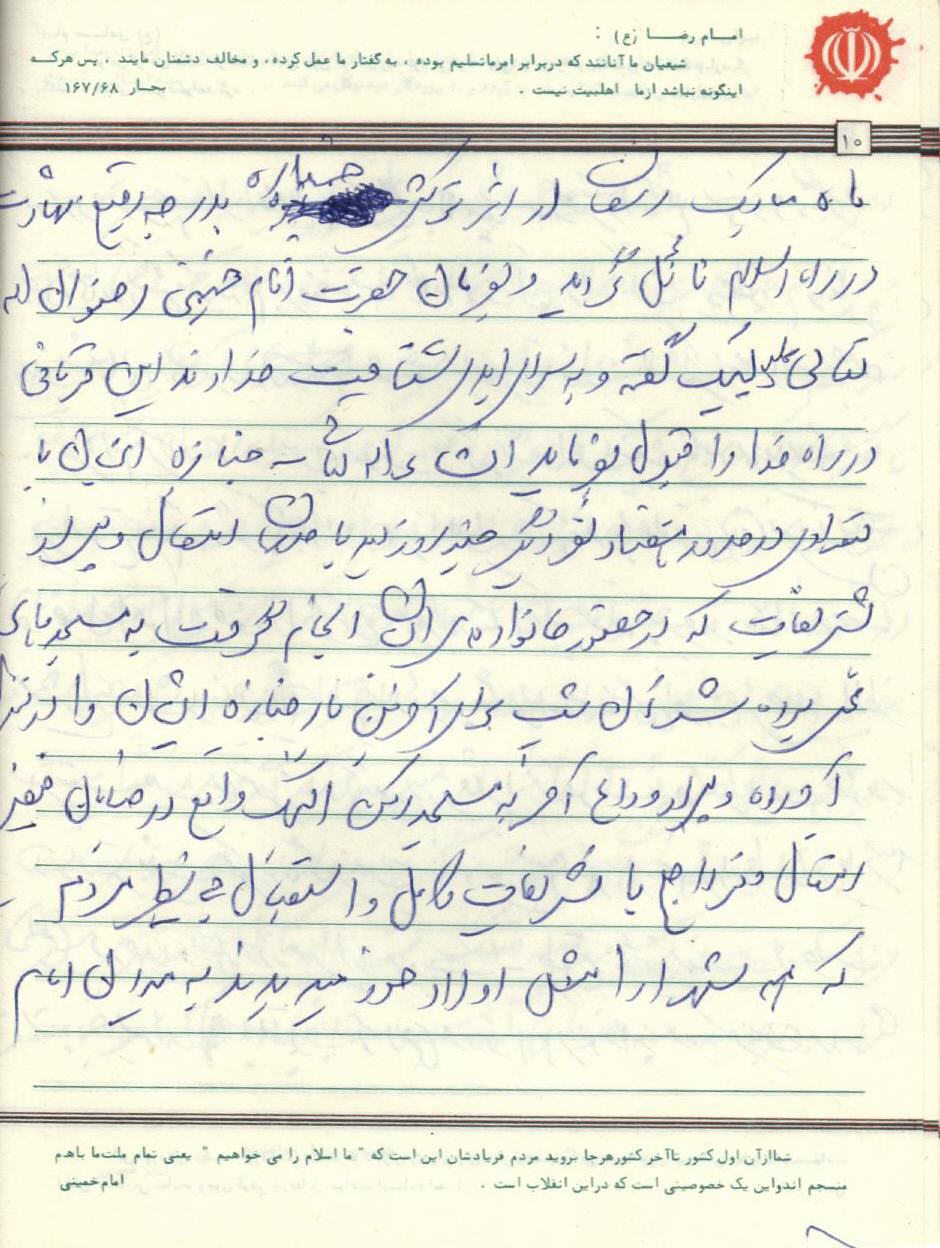 امام رضا (ع) :
شیعیان ما آنانند که دربرابر امرماتسلیم بوده ، به گفتار ما عمل کرده ، و مخالف دشمنان مایند ، پس هرکه
اینگونه نباشد ازما اهلبیت نیست . بحار ۱۶۷/۶۸
۱۰
ماه مبارک رمضان در اثر ترکش خمپاره بدرجه رفیع شهادت
در راه اسلام نائل گردید و بفرمان حضرت امام خمینی رضوان الله
تعالی علیه لبیک گفته و به سرای ابدی شتافت خداوند این قربانی
در راه خدا را قبول بفرماید انشاءالله تعالی جنازه ایشان با
تعدادی در حدود هفتاد نفر دیگر چند روز بعد با انتقال و پس از
تشریفات که در حضور خانواده‌های ایشان انجام گرفت به مسجد
محل برده شد آن شب برای آوردن جنازه ایشان را در
آورده و برای وداع آخر به مسجد رکن الملک واقع در خیابان فیض
انتقال و فردا صبح با تشریفات کامل و استقبال بی نظیر مردم
که همه شهدا را مثل اولاد خود میدیدند به میدان امام
شماازآن اول کشور تاآخر کشورهرجا بروید مردم فریادشان این است که " ما اسلام را می خواهیم " یعنی تمام ملت‌ما باهم
منسجم اندواین یک خصوصیتی است که دراین انقلاب است . امام‌خمینی